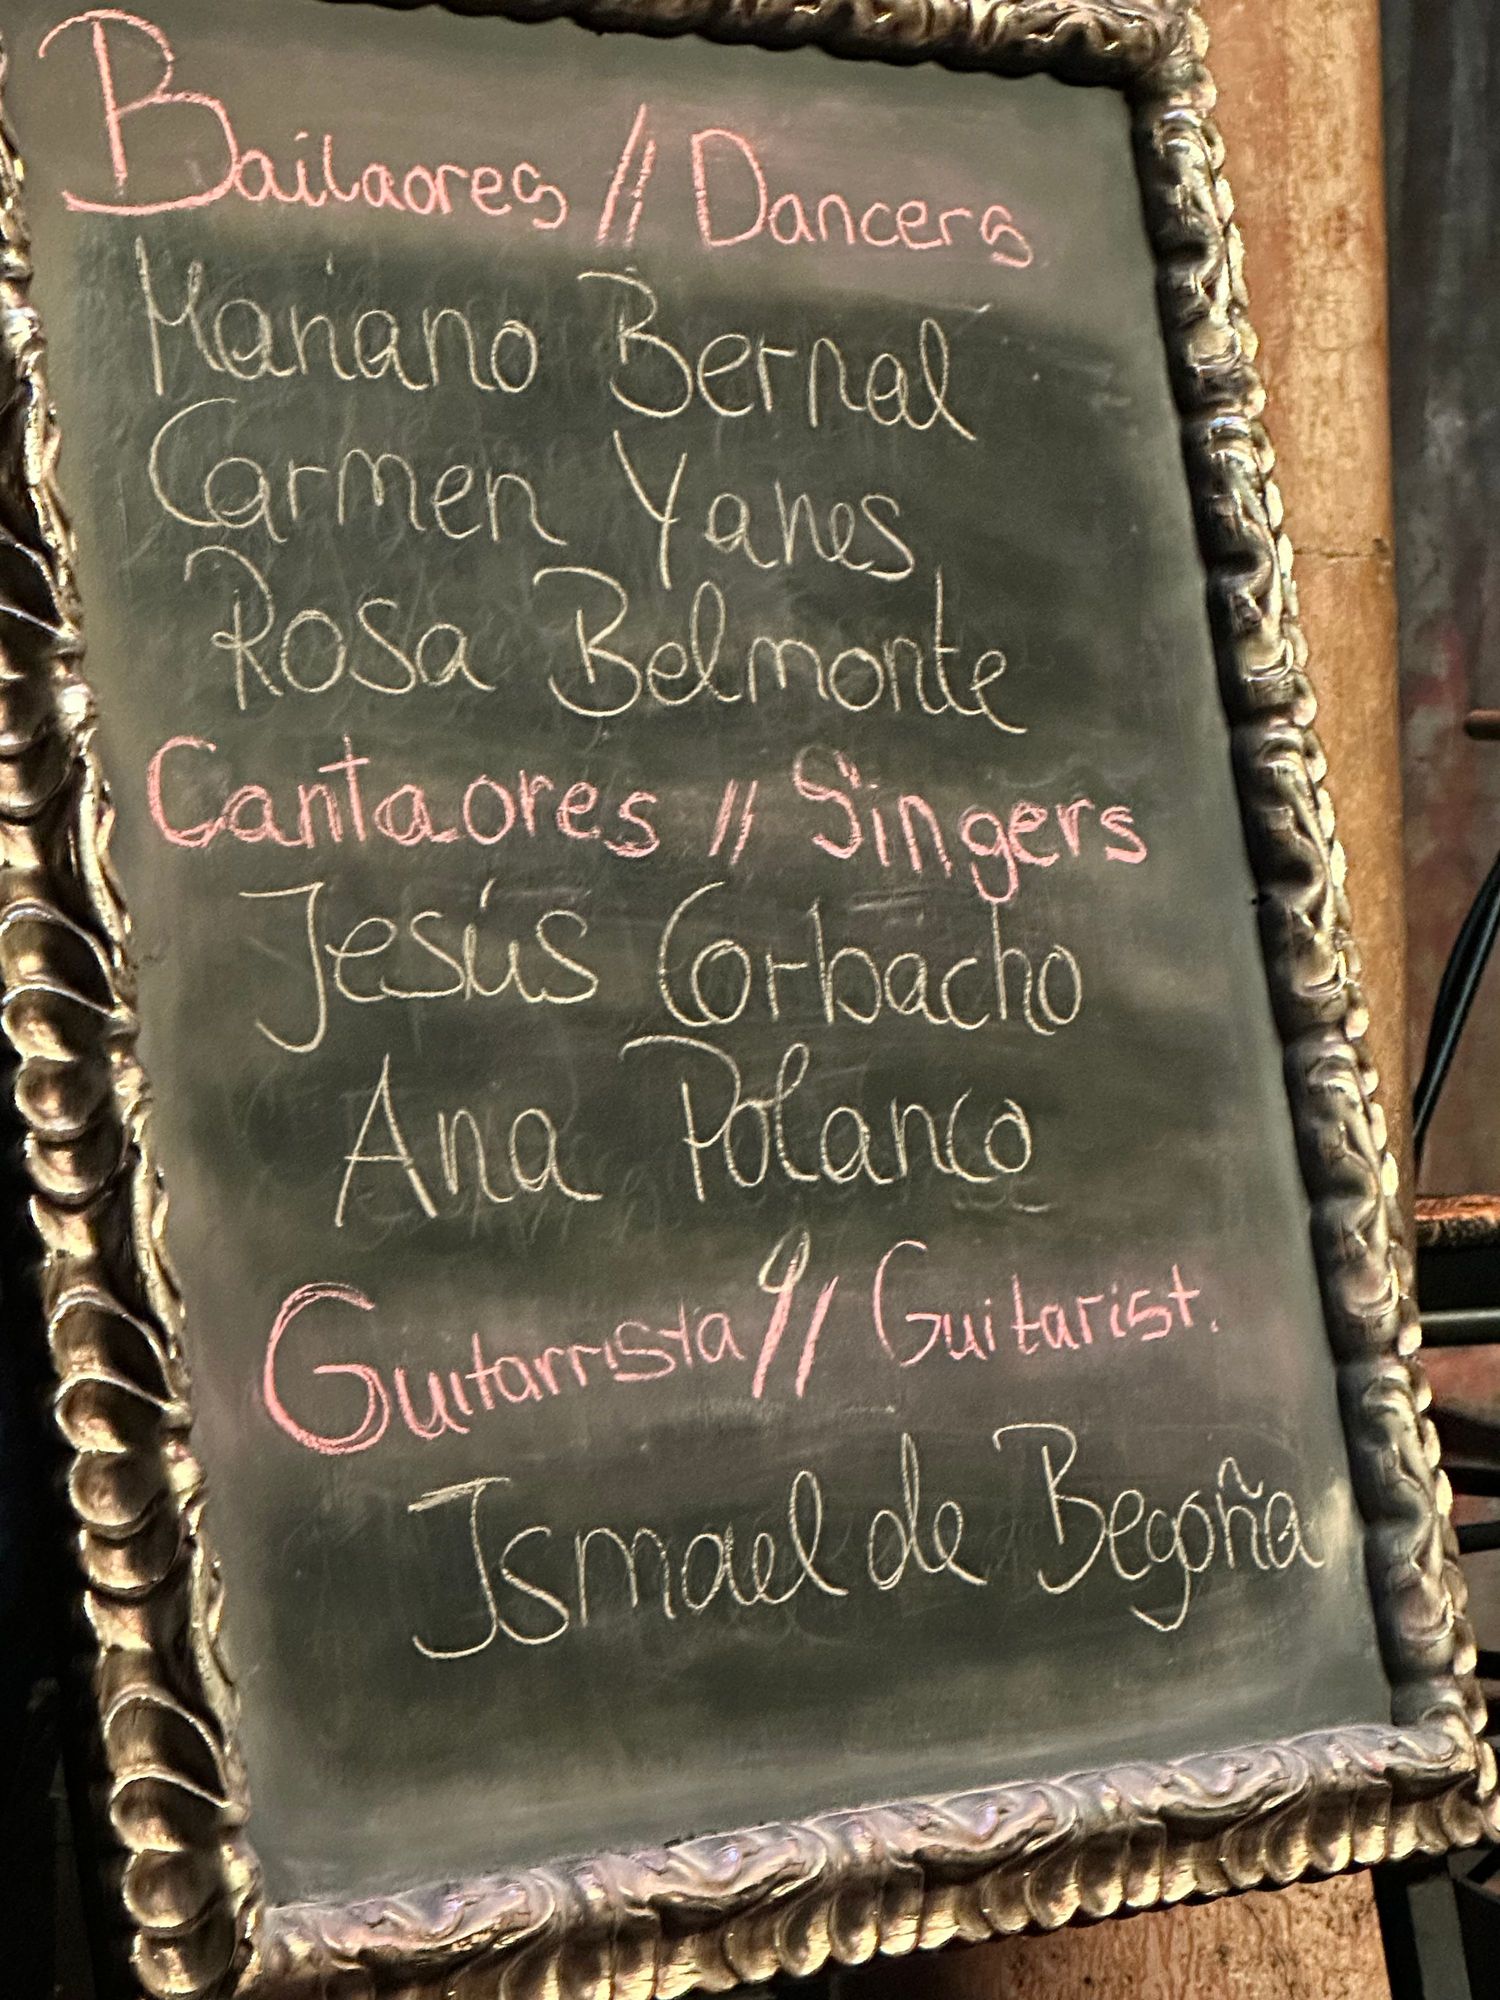 Bailaores // Dancers
Mariano Bernal
Carmen Yanes
Rosa Belmonte
Cantaores // Singers
Jesús Corbacho
Ana Polanco
Guitarrista // Guitarist.
Ismael de Begoña